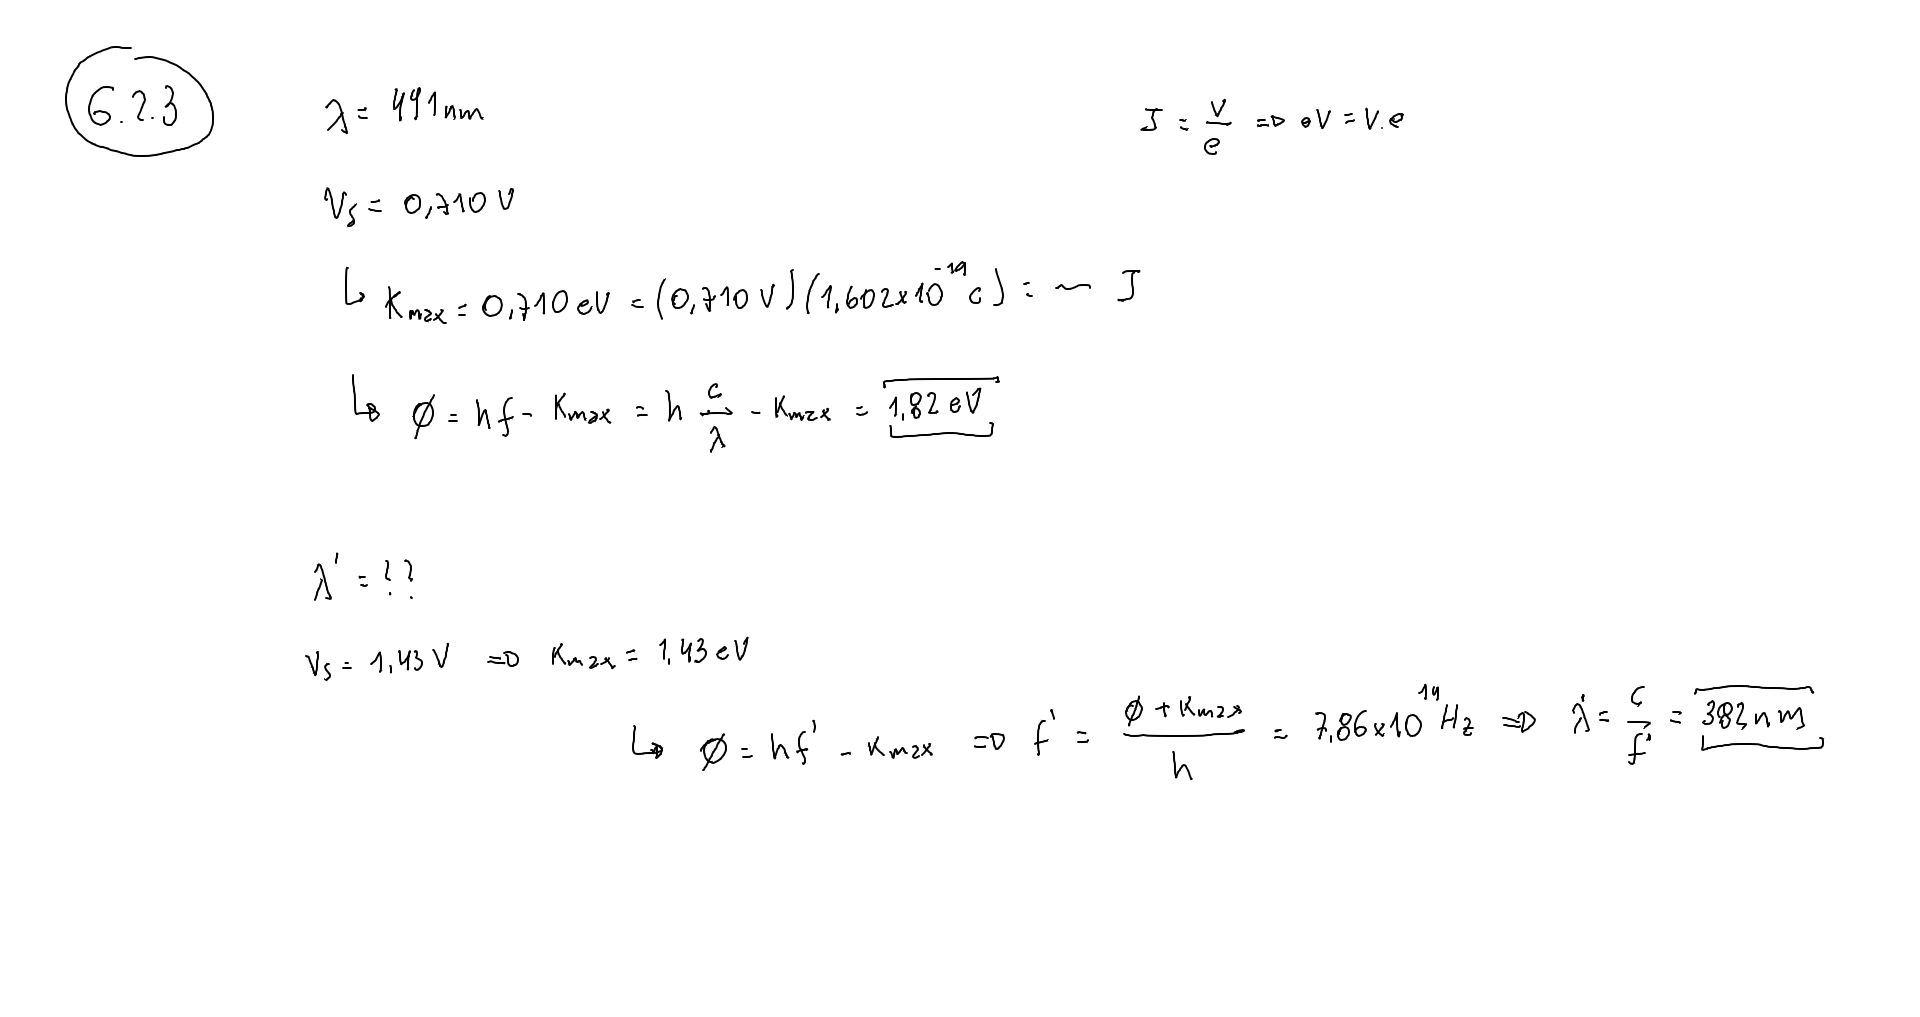 6.2.3
λ = 491 nm
J = V/e => eV = V.e
Vs = 0,710 V
↳ Kmax = 0,710 eV = (0,710 V)(1,602x10^-19 C) = ~ J
↳ ø = hf - Kmax = h c/λ - Kmax = 1,82 eV
λ' = ??
Vs = 1,43 V => Kmax = 1,43 eV
↳ ø = hf' - Kmax => f' = (ø + Kmax)/h = 7,86x10^14 Hz => λ' = c/f' = 382 nm